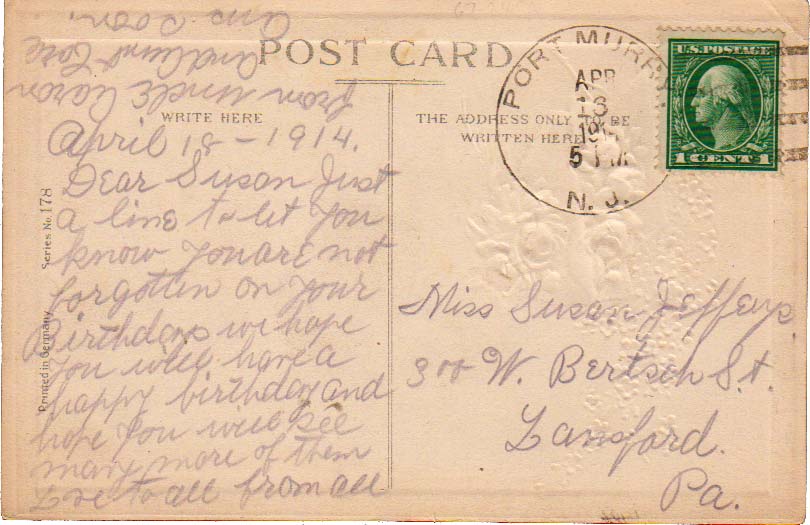 POST CARD
WRITE HERE
THE ADDRESS ONLY TO BE
WRITTEN HERE
PORT MURRAY
APR
N. J.
U.S. POSTAGE
1 CENT 1
Series No. 178
Printed in Germany
April 18 - 1914.
Dear Susan Just
a line to let you
know you are not
forgotten on your
Birthday we hope
you will have a
happy birthday and
hope you will see
many more of them
Love to all from all
from Uncle Aaron
and Aunt
and Son.
Miss Susan Jefferys
300 W. Bertsch St.
Lansford.
Pa.